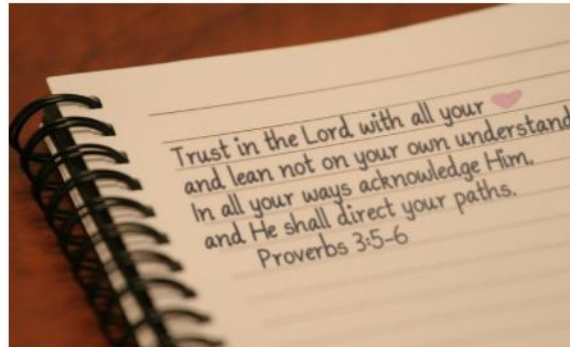 Trust in the Lord with all your ♥
and lean not on your own understand
In all your ways acknowledge Him,
and He shall direct your paths.
Proverbs 3:5-6